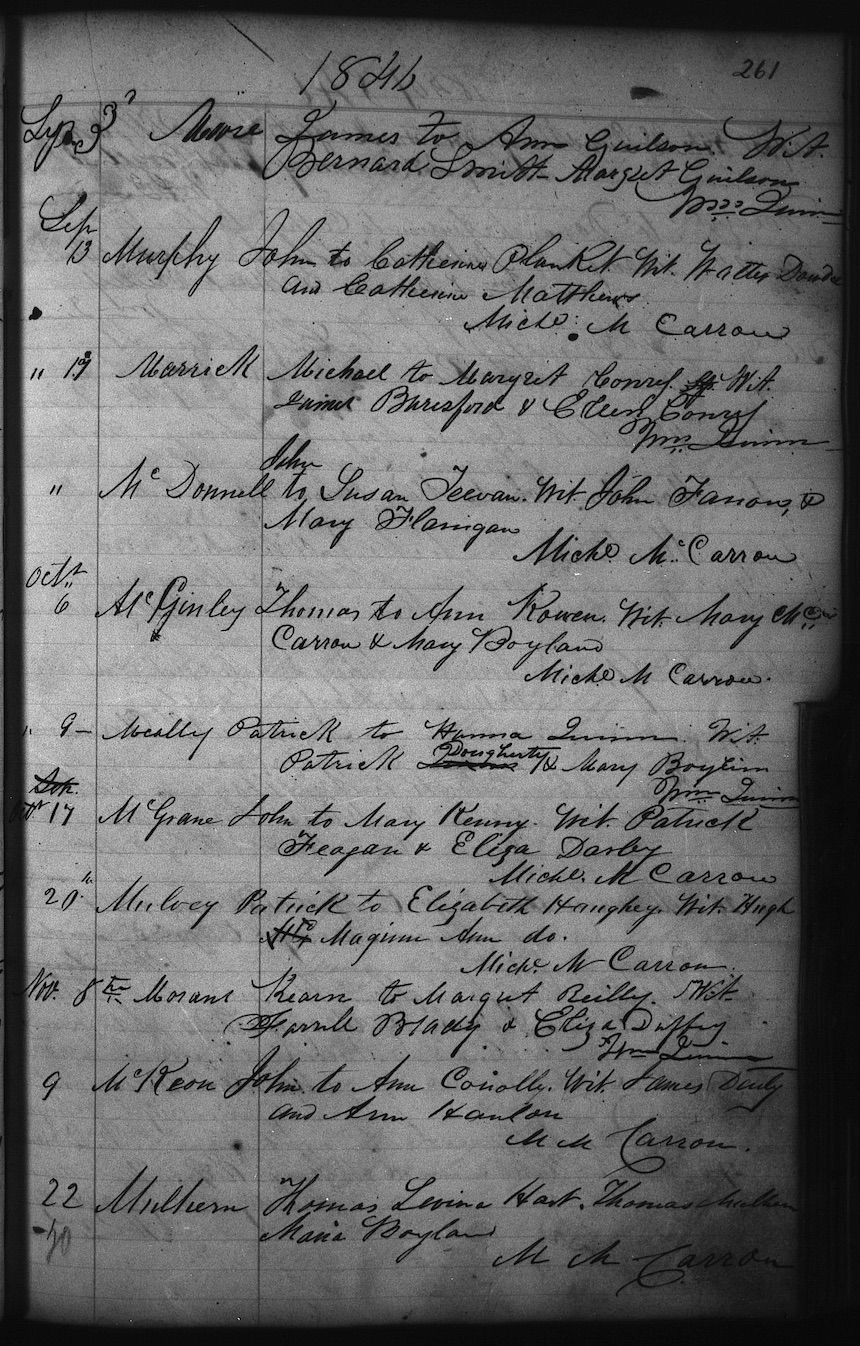 1846 261
Sep 3 James to Ann Guilson Wit.
Bernard Smith Margret Guilson
Wm Quinn
Sep
13 Murphy John to Catherine Plunket Wit. Walter
and Catherine Matthews
Michl. M Carron
" Marrick Michael to Margret Wit.
James Baresford & Ellen
Wm Quinn
John
" Mc Donnell to Susan Teevan. Wit. John &
Mary Flanigan
Michl. Mc Carron
Oct
6 McGinley Thomas to Ann Rowen. Wit. Mary Mc
Carron & Mary Boyland
Michl M Carron.
" 9 - Patrick to Hanna Quinn. Wit.
Dougherty
Patrick & Mary
Wm Quinn
Oct 17 McGrane John to Mary Kenny. Wit. Patrick
Feagan & Eliza Darby
Michl. M Carron
20 Mulvey Patrick to Elizabeth Haughey. Wit. Hugh
Maginn Ann do.
Michl. M Carron.
Nov. 8th Morans Kearn to Margret Reilly. Wit
Farrell Brady & Eliza Duffy
Wm Quinn
9 McKeon John to Ann Conolly. Wit. James
and Ann Hanlon
M M Carron.
22 Mulhern Thomas Levina Hart. Thomas Mulhern
Maria Boyland
M M Carron